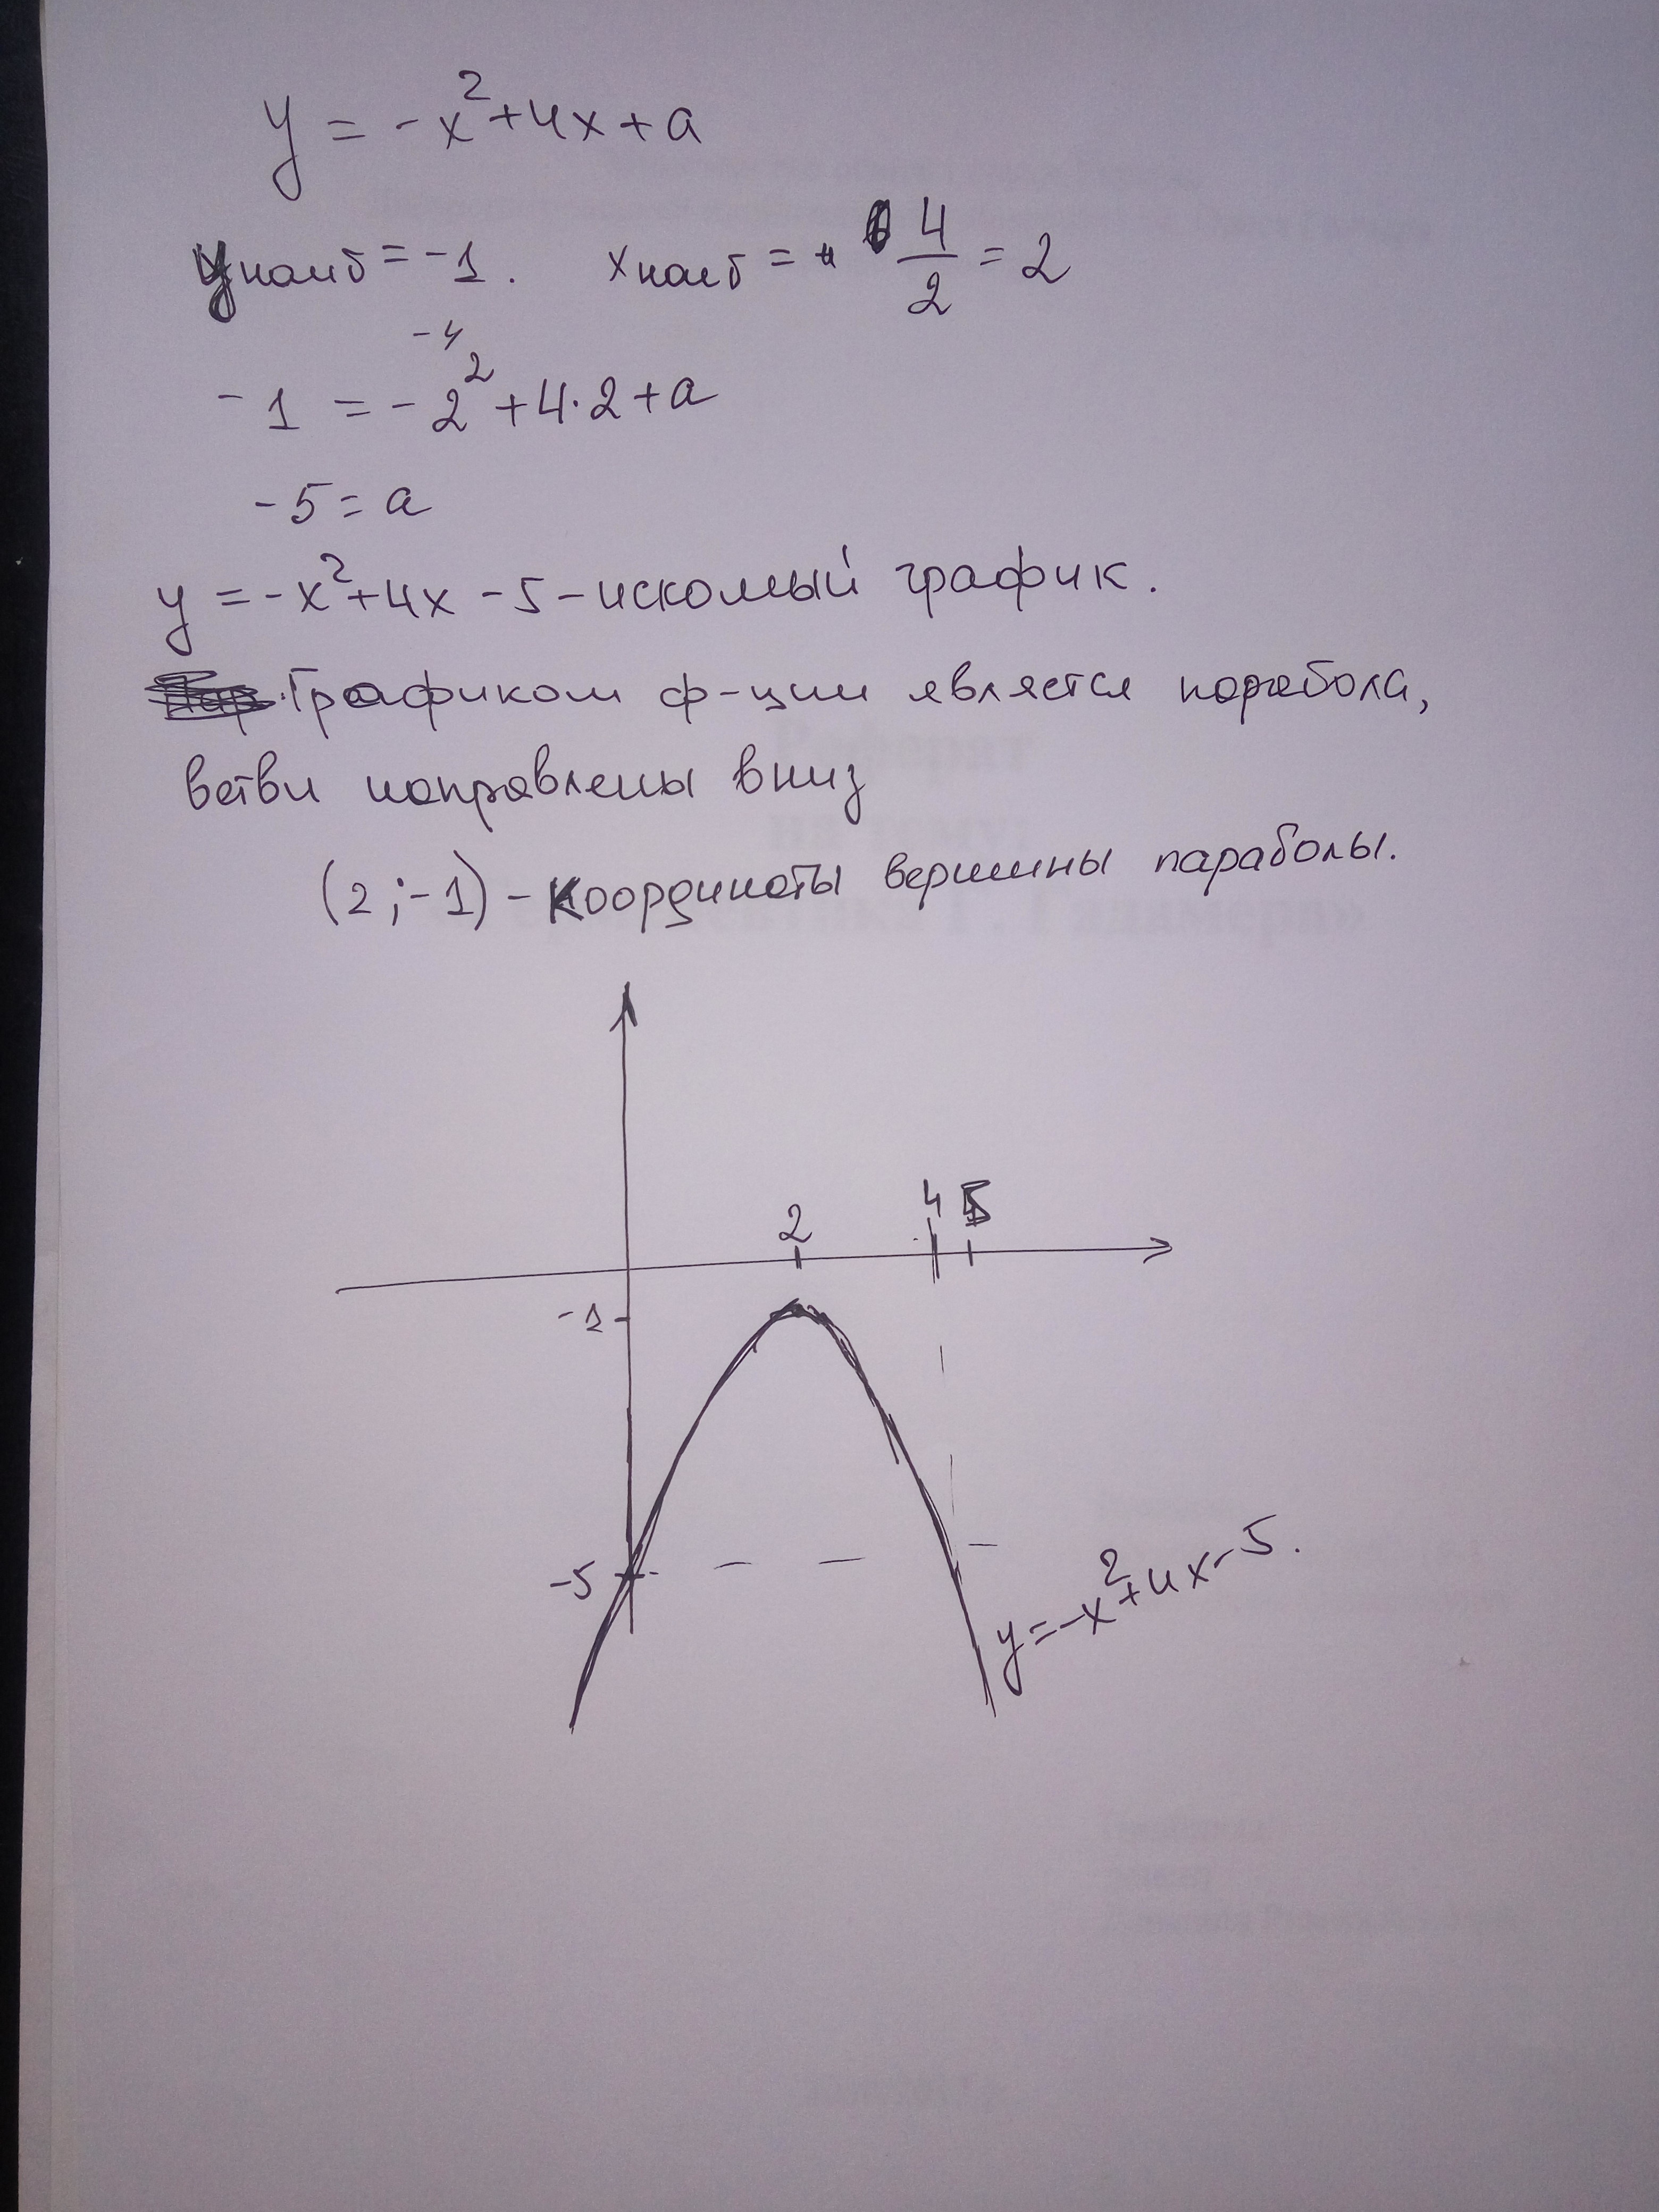 y = -x²+4x+a
yнаиб = -1. xнаиб = 4/2 = 2
-4
-1 = -2²+4·2+a
-5 = a
y = -x²+4x-5 - искомый график.
Графиком ф-ции является парабола,
ветви направлены вниз
(2;-1) - координаты вершины параболы.
2 4 5
-1
-5
y=-x²+4x-5.